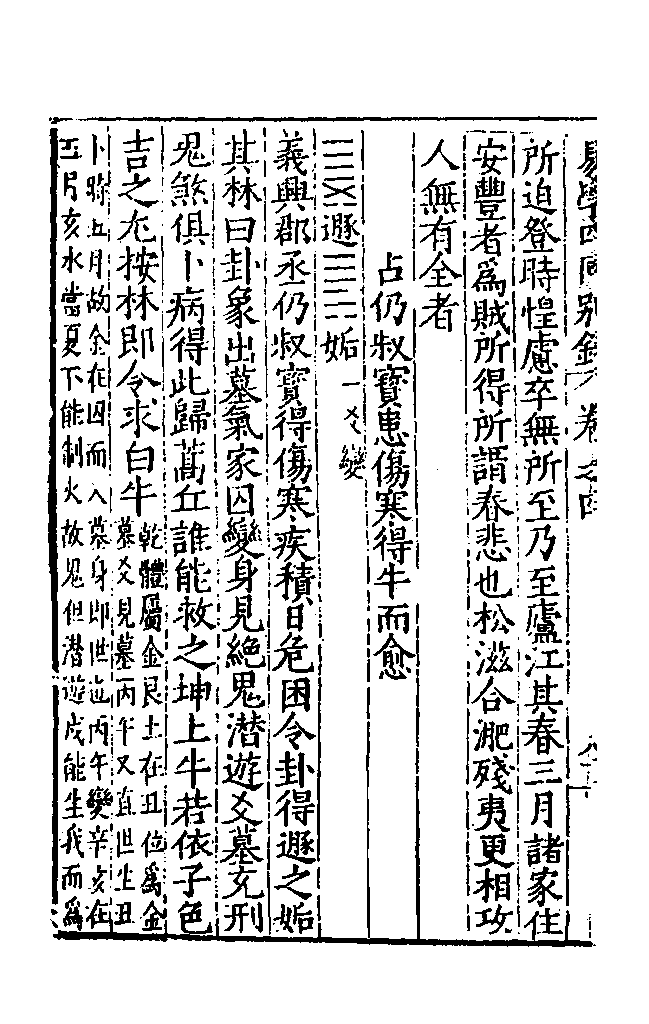 易學四同別錄 卷之四
所迫登時惶慮卒無所至乃至廬江其春三月諸家住
安豐者為賊所得所謂春悲也松滋合淝殘夷更相攻
人無有全者
占仍叔寶患傷寒得牛而愈
遯 姤 一爻變
義興郡丞仍叔寶得傷寒疾積日危困令卦得遯之姤
其林曰卦象出墓氣家囚變身見絕鬼潛遊爻墓充刑
鬼煞俱卜病得此歸蒿丘誰能救之坤上牛若依子色
吉之尤按林即令求白牛 乾體屬金艮土在丑位為金
墓爻見墓丙午又直世生丑
卜時五月故金在囚而入墓身即世也丙午變辛亥在
五月亥水當夏下能制火故鬼但潛遊戌能生我而為